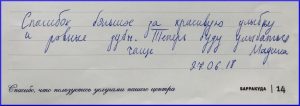 Спасибо большое за красивую улыбку
и ровные зубы. Теперь буду улыбаться
чаще Мадина
27.06.18
Спасибо, что пользуетесь услугами нашего центра
БАРРАКУДА | 14